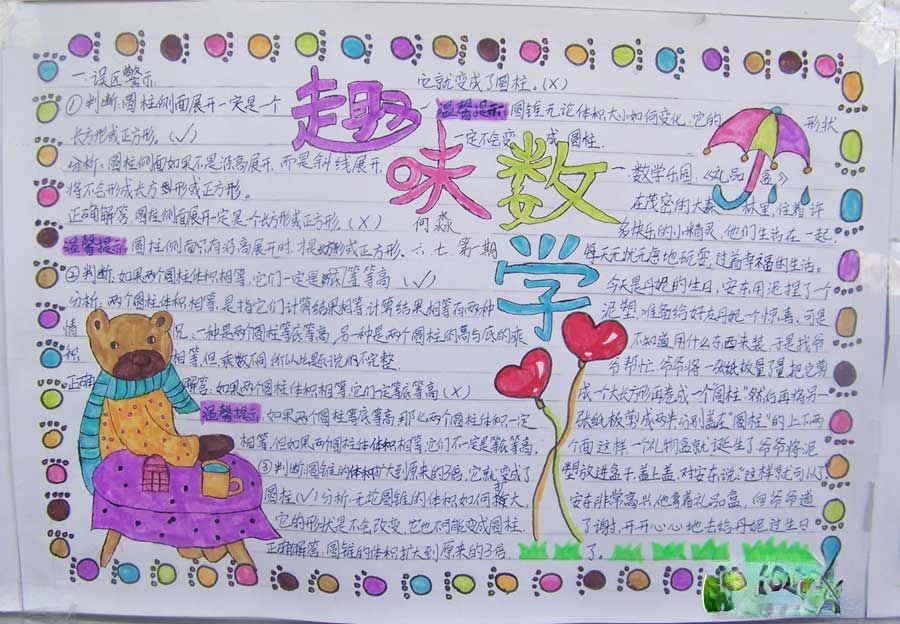 趣味数学
何淼
六.七.第一期
一.误区警示
①判断:圆柱侧面展开一定是一个
长方形或正方形。(√)
分析:圆柱侧面如果不是沿高展开,而是斜线展开,
将不会形成长方形或正方形。
正确解答:圆柱侧面展开一定是个长方形或正方形。(X)
温馨提示:圆柱侧面只有沿高展开时,才是长方形或正方形。
②判断:如果两个圆柱体积相等,它们一定是等底等高(√)
分析:两个圆柱体积相等,是指它们计算结果相等计算结果相等有两种
情况、一种是两个圆柱等底等高,另一种是两个圆柱的高与底的乘
积相等,但乘数不同
正确解答:如果两个圆柱体积相等,它们一定等底等高(X)
温馨提示:如果两个圆柱等底等高,那么两个圆柱体积一定
相等,但如果两个圆柱体体积相等,它们不一定是等底等高。
③判断:圆锥的体积扩大到原来的3倍,它就变成了
圆柱(√)分析:无论圆锥的体积如何
它的形状是不会改变,它也不可能变成圆柱.
正确解答:圆锥的体积扩大到原来的3倍.
它就变成了圆柱。(X)
温馨提示:圆锥无论体积大小如何变化,它的形状
一定不会变成圆柱.
一.数学乐园.《礼品盒》
在茂密的大森林里,住着许
多快乐的小精灵,他们生活在一起,
每天无忧无虑地玩耍,过着幸福的生活。
今天是丹妮的生日,安东用泥捏了个
泥塑,准备给好友丹妮一个惊喜,可是
不知道用什么东西来装,于是找爷
爷帮忙.爷爷将一张纸板量了量把它
成一个大长方形再卷成一个圆柱"然后再将另一
张纸板剪成两半分别盖在"圆柱"的上下两
方面这样一个礼物盒就诞生了爷爷将泥
塑放进盒子,盖上盖,对安东说:"这样就可以了
安东非常高兴,他拿着礼品盒,
了谢,开开心心地去给丹妮过生日
了.